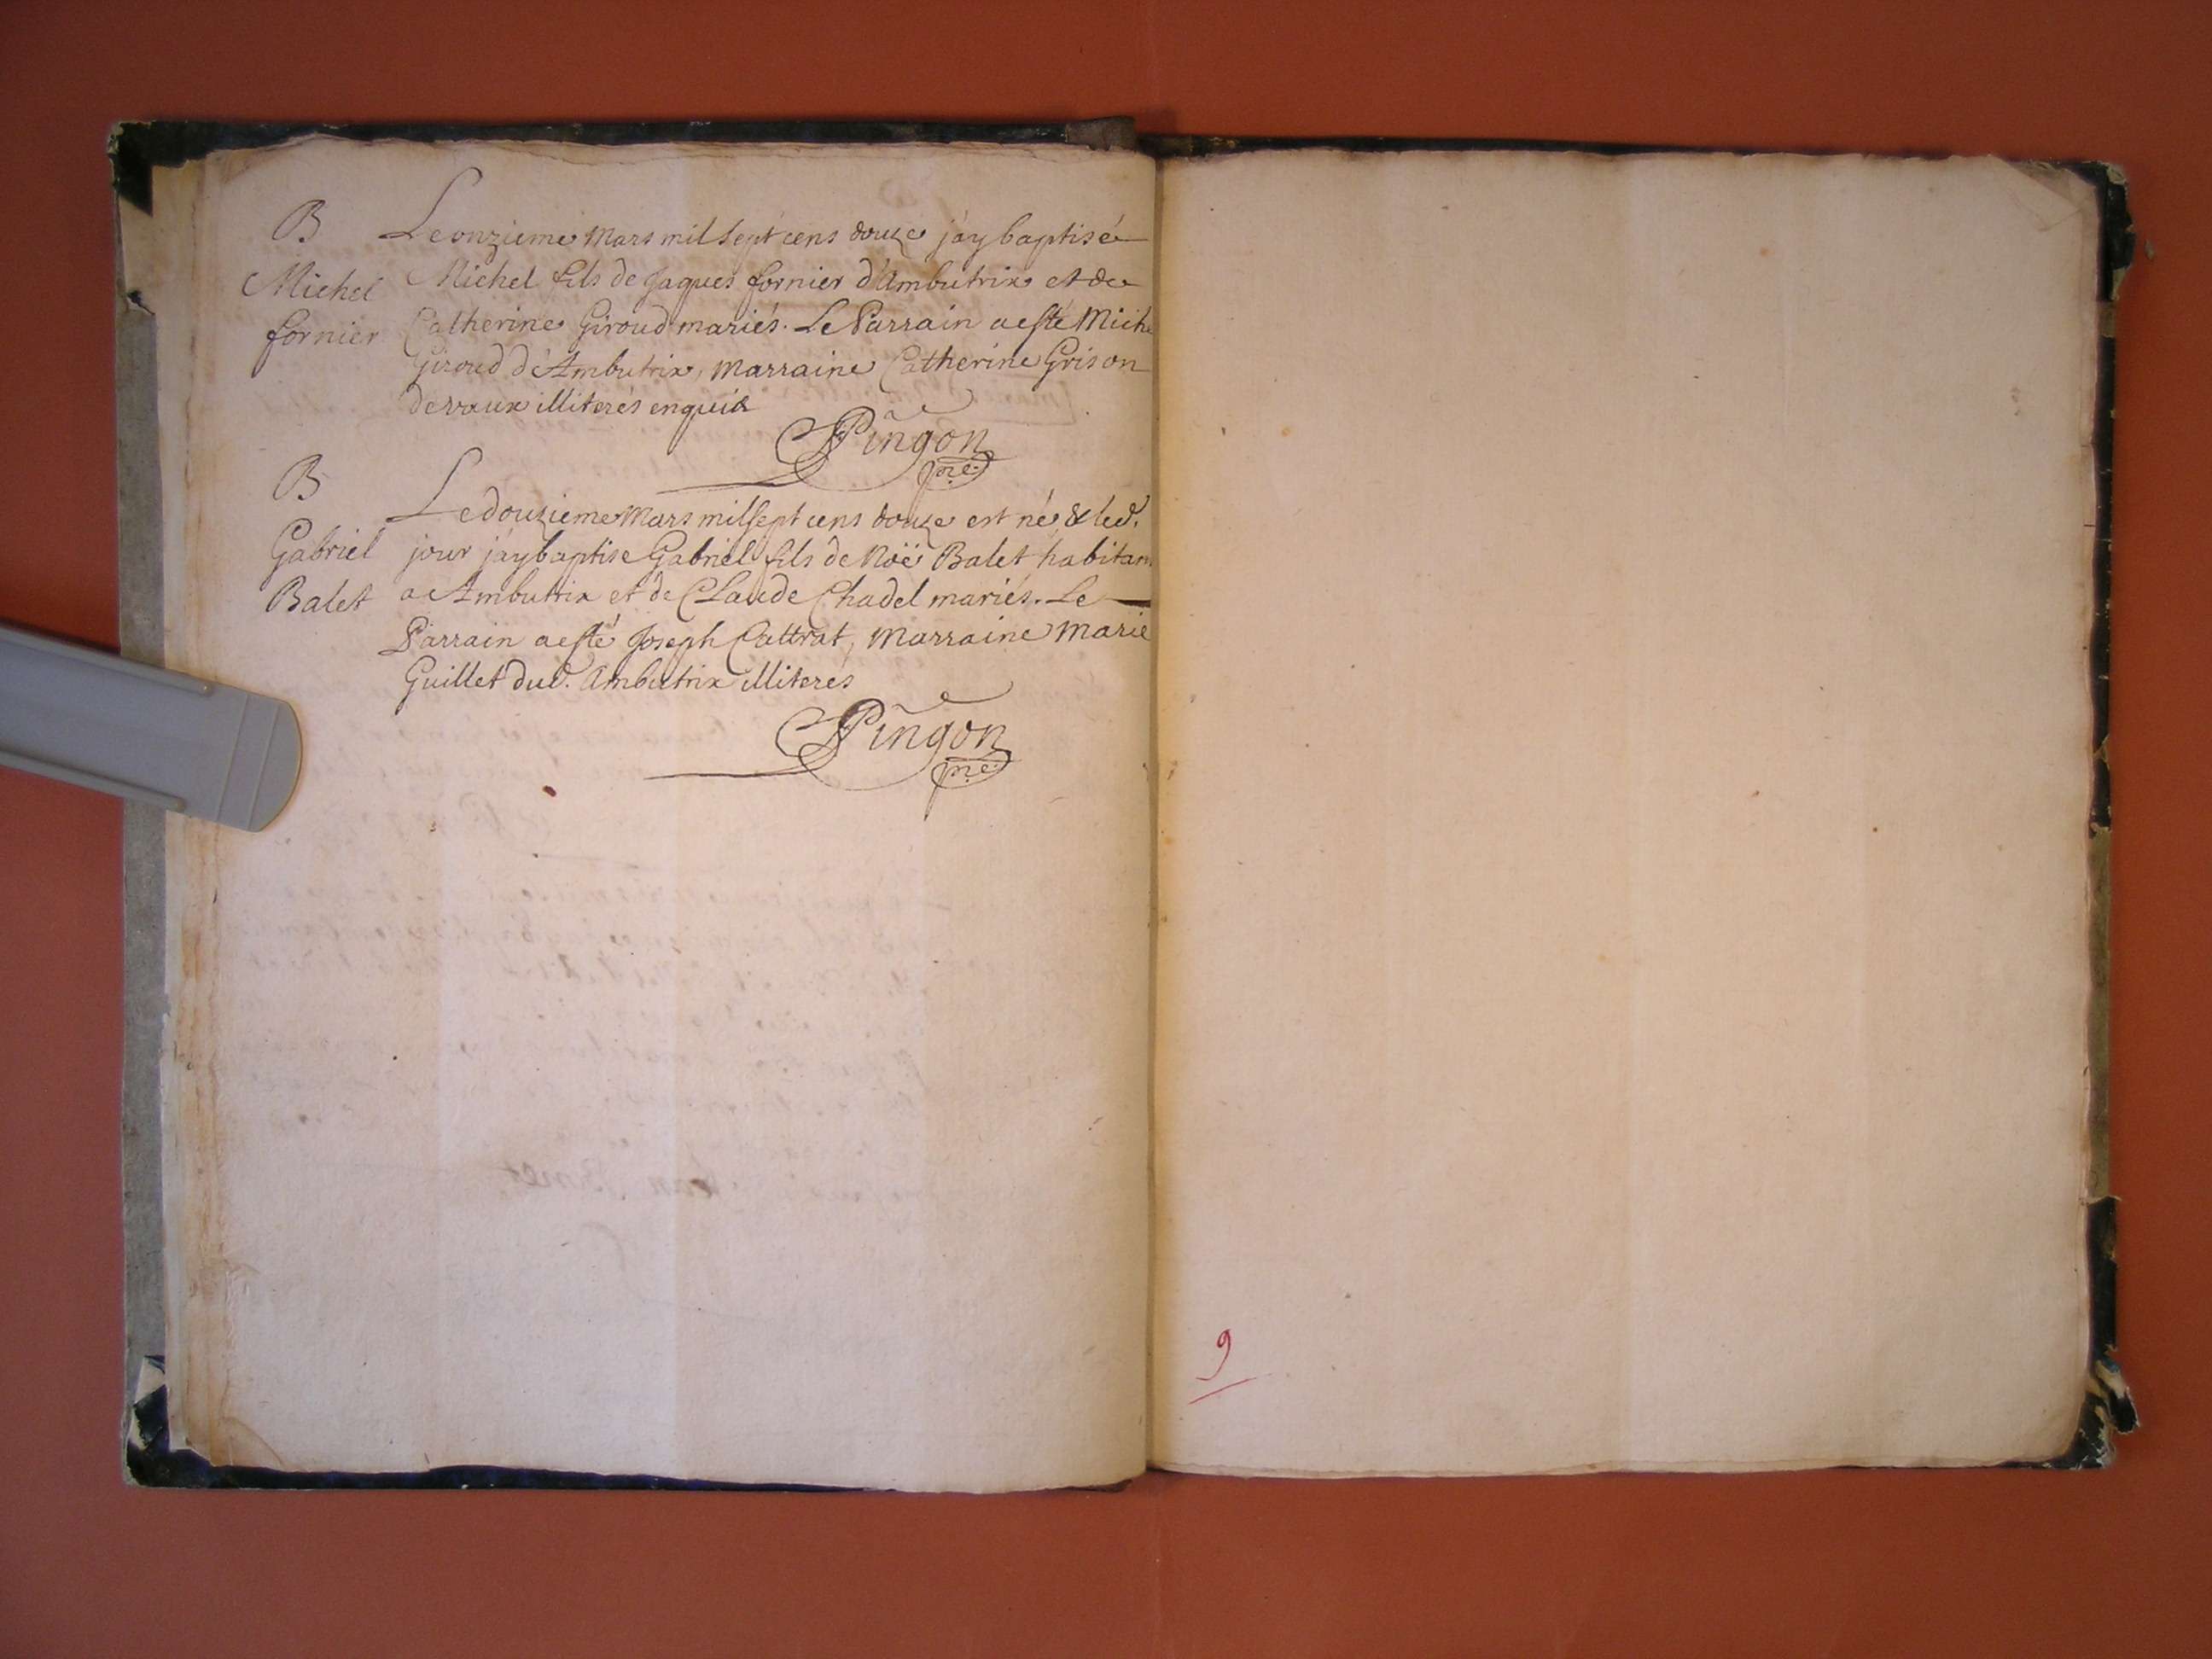 B
Le onzieme Mars mil sept cens douze j'ay baptisé
Michel
fornier
Michel fils de Jaques fornier d'Ambutrix et de
Catherine Giroud mariés. Le Parrain a esté Miche
Giroud d'Ambutrix, Marraine Catherine Grison
de vaux illiterés enquis
Pingon
pre.
B
Le douzieme Mars mil sept cens douze est né & led.
Gabriel
Balet
jour j'ay baptise Gabriel fils de Noë Balet habitan
a Ambutrix et de Claude Chadel mariés. Le
Parrain a esté Joseph Cattrat, Marraine Marie
Guillet dud. Ambutrix illiterés
Pingon
pre.
9